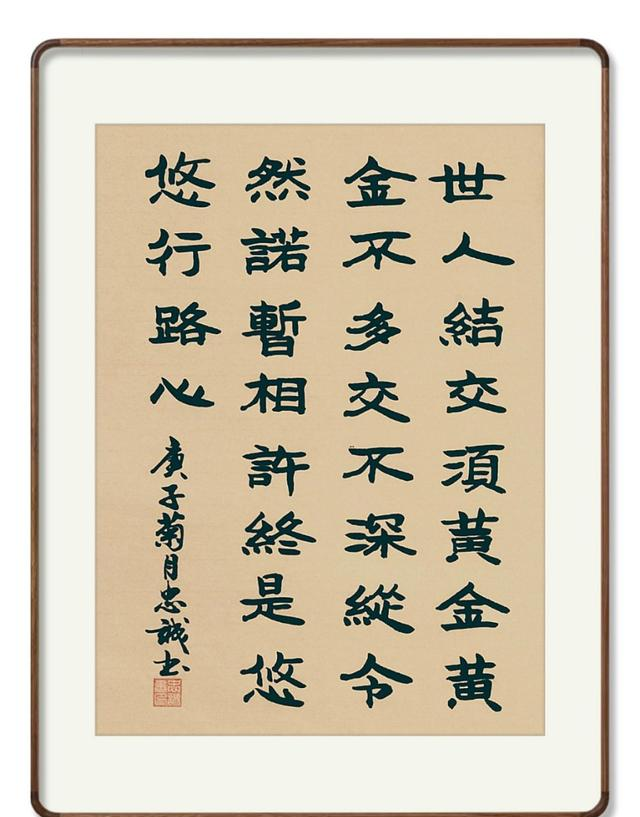 世人結交湏黃金黃
金不多交不深縱令
然諾暫相許終是悠
悠行路心
庚子菊月忠誠书